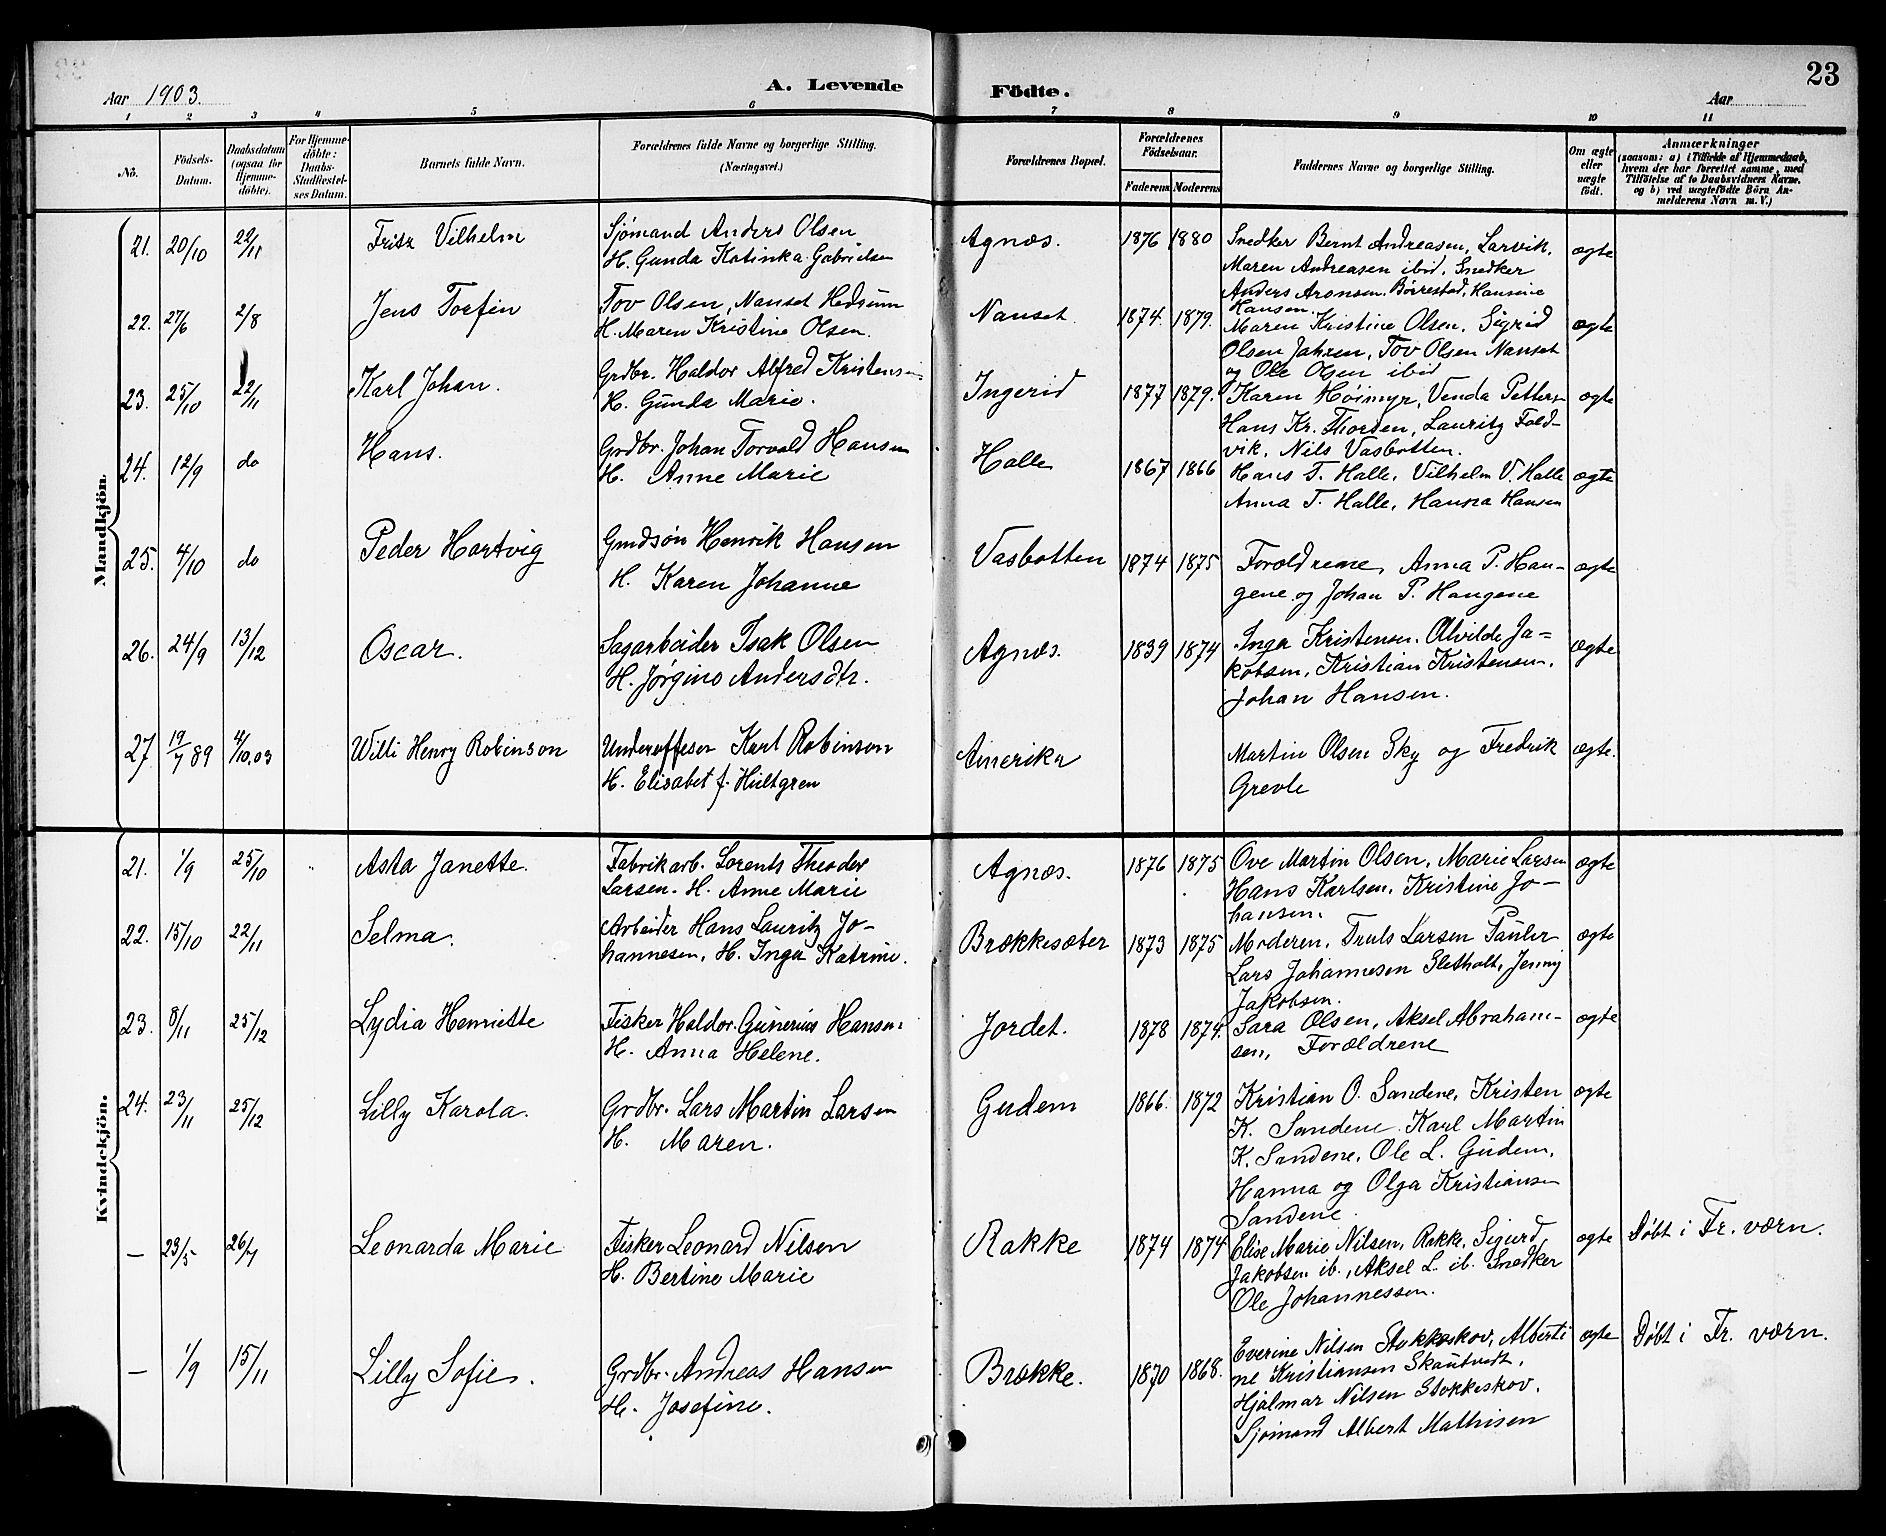 Aar 1903.
A. Levende Födte.
23
Aar
1 2 3 4 5 6 7 8 9 10 11
No.
Födsels-Datum.
Daabsdatum (ogsaa for Hjemme-döbte).
For Hjemme-döbte: Daabs-Stadfæstel-ses Datum.
Barnets fulde Navn.
Forældrenes fulde Navne og borgerlige Stilling. (Næringsvei.)
Forældrenes Bopæl.
Forældrenes Födselsaar.
Faderens Moderens
Faddernes Navne og borgerlige Stilling.
Om ægte eller uægte födt.
Anmærkninger
(saasom: a) i Tilfælde af Hjemmedaab, hvem der har forrettet samme, med Tilföielse af to Daabsvidners Navne, og b) ved uægtefödte Börn Anmelderens Navn m. V.)
Mandkjön.
21. 20/10 22/11 Fritz Vilhelm
Sjömand Anders Olsen
H. Gunda Katinka Gabrielsen
Agnæs. 1876 1880
Snedker Bernt Andreasen, Larvik,
Maren Andreasen ibid, Snedker
Anders Aronsen, Börrestad, Hansine
Hansen.
ægte
22. 27/6 2/8 Jens Torfin
Tov Olsen, Nanset Hedrum
H. Maren Kristine Olsen.
Nanset. 1874. 1879.
Maren Kristine Olsen, Sigrid
Olsen Jahren, Tov Olsen Nanset
og Ole Olsen ibid
ægte
23. 25/10 22/11 Karl Johan.
Grdbr. Haldor Alfred Kristensen
H. Gunda Marie.
Ingerid 1877 1879.
Karen Höimyr, Venda Petters-
Hans Kr. Thorsen, Lauritz Fold-
vik, Nils Vasbotten.
ægte
24. 12/9 do Hans.
Grdbr. Johan Torvald Hansen
H. Anne Marie
Halle 1867 1866
Hans T. Halle, Vilhelm V. Halle
Anna T. Halle, Hanna Hansen
ægte
25. 4/10 do Peder Hartvig
Grndsön Henrik Hansen
H. Karen Johanne
Vasbotten 1874 1875
Foroldrene, Anna P. Hau-
gene og Johan P. Haugene
ægte
26. 24/9 13/12 Oscar.
Sagarbeider Isak Olsen
H. Jørgine Andersdtr.
Agnæs. 1839 1874
Inga Kristensen, Alvilde Ja-
kobsen, Kristian Kristensen,
Johan Hansen.
ægte
27 19/7 89 4/10.03 Willi Henry Robinson
Underoffeser Karl Robinson
H. Elisabet f. Hultgren
Amerika
Martin Olsen Sky og Fredrik
Grevle
ægte.
Kvindekjön.
21. 1/9 25/10 Asta Janette.
Fabrikarb. Lorents Theodor
Larsen. H. Anne Marie
Agnæs. 1876 1875
Ove Martin Olsen, Marie Larsen
Hans Karlsen, Kristine Jo-
hansen.
ægte
22. 15/10 22/11 Selma.
Arbeider Hans Lauritz Jo-
hannesen, H. Inga Katrine.
Brækkesæter 1873 1875
Moderen, Truls Larsen Pauler
Lars Johannesen Sletholt, Jenny
Jakobsen.
ægte
23. 8/11 25/12 Lydia Henriette
Fisker Haldor Gunerius Hansen
H. Anna Helene.
Jordet. 1878 1874.
Sara Olsen, Aksel Abraham-
sen, Forældrene
ægte
24. 23/11 25/12 Lilly Karola.
Grdbr. Lars Martin Larsen
H. Maren.
Gudem 1866. 1872
Kristian O. Sandene, Kristen
K. Sandene. Karl Martin
K. Sandene, Ole L. Gudem,
Hanna og Olga Kristiansen
Sandene.
ægte
– 23/5 26/7 Leonarda Marie
Fisker Leonard Nilsen
H. Bertine Marie
Rakke 1874 1874
Elise Marie Nilsen, Rakke, Sigurd
Jakobsen ib., Aksel L. ib. Snedker
Ole Johannessen.
ægte
Døbt i Fr. værn.
– 1/9 15/11 Lilly Sofie.
Grdbr. Andreas Hansen
H. Josefine.
Brække. 1870 1868.
Everine Nilsen Stokkeskov, Alberti
ne Kristiansen Skautvedt,
Hjalmar Nilsen Stokkeskov.
Sjömand Albert Mathisen
ægte
Døbt i Fr. værn.